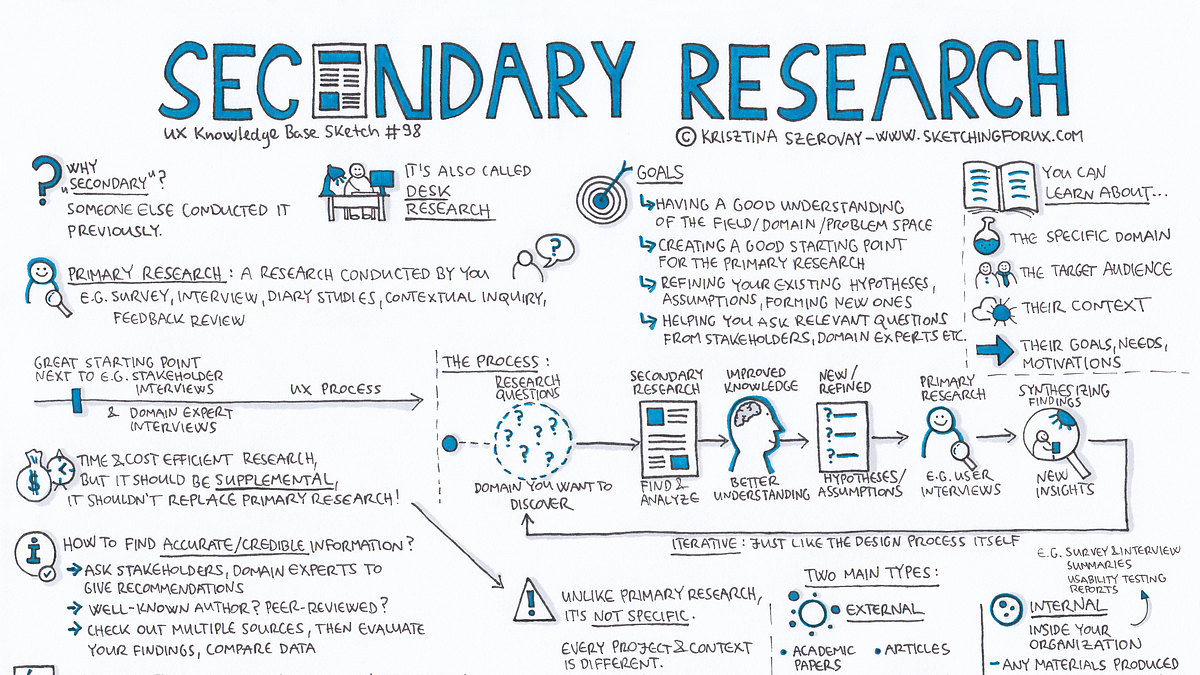 SECONDARY RESEARCH
UX Knowledge Base Sketch #98
© KRISZTINA SZEROVAY – WWW.SKETCHINGFORUX.COM
WHY
"SECONDARY"?
SOMEONE ELSE CONDUCTED IT
PREVIOUSLY.
IT'S ALSO CALLED
DESK
RESEARCH
PRIMARY RESEARCH: A RESEARCH CONDUCTED BY YOU
E.G. SURVEY, INTERVIEW, DIARY STUDIES, CONTEXTUAL INQUIRY,
FEEDBACK REVIEW
GOALS
HAVING A GOOD UNDERSTANDING
OF THE FIELD/DOMAIN/PROBLEM SPACE
CREATING A GOOD STARTING POINT
FOR THE PRIMARY RESEARCH
REFINING YOUR EXISTING HYPOTHESES,
ASSUMPTIONS, FORMING NEW ONES
HELPING YOU ASK RELEVANT QUESTIONS
FROM STAKEHOLDERS, DOMAIN EXPERTS ETC.
YOU CAN
LEARN ABOUT...
THE SPECIFIC DOMAIN
THE TARGET AUDIENCE
THEIR CONTEXT
THEIR GOALS, NEEDS,
MOTIVATIONS
GREAT STARTING POINT
NEXT TO E.G. STAKEHOLDER
INTERVIEWS
UX PROCESS
& DOMAIN EXPERT
INTERVIEWS
THE PROCESS:
RESEARCH
QUESTIONS
DOMAIN YOU WANT TO
DISCOVER
SECONDARY
RESEARCH
FIND &
ANALYZE
IMPROVED
KNOWLEDGE
BETTER
UNDERSTANDING
NEW/
REFINED
HYPOTHESES/
ASSUMPTIONS
PRIMARY
RESEARCH
E.G. USER
INTERVIEWS
SYNTHESIZING
FINDINGS
NEW
INSIGHTS
ITERATIVE: JUST LIKE THE DESIGN PROCESS ITSELF
TIME & COST EFFICIENT RESEARCH,
BUT IT SHOULD BE SUPPLEMENTAL,
IT SHOULDN'T REPLACE PRIMARY RESEARCH!
HOW TO FIND ACCURATE/CREDIBLE INFORMATION?
ASK STAKEHOLDERS, DOMAIN EXPERTS TO
GIVE RECOMMENDATIONS
WELL-KNOWN AUTHOR? PEER-REVIEWED?
CHECK OUT MULTIPLE SOURCES, THEN EVALUATE
YOUR FINDINGS, COMPARE DATA
UNLIKE PRIMARY RESEARCH,
IT'S NOT SPECIFIC.
EVERY PROJECT & CONTEXT
IS DIFFERENT.
TWO MAIN TYPES:
EXTERNAL
• ACADEMIC
PAPERS
• ARTICLES
E.G. SURVEY & INTERVIEW
SUMMARIES
USABILITY TESTING
REPORTS
INTERNAL
INSIDE YOUR
ORGANIZATION
– ANY MATERIALS PRODUCED